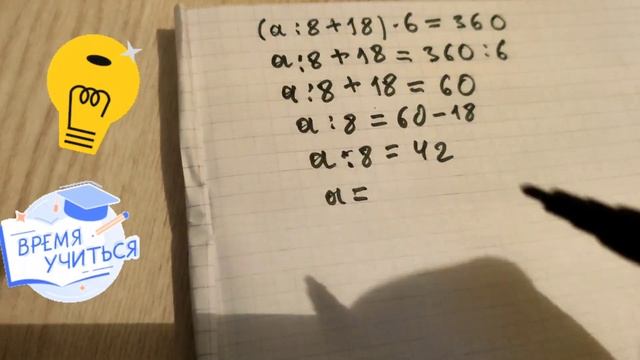 (a:8+18)·6=360
a:8+18=360:6
a:8+18=60
a:8=60-18
a:8=42
a=
ВРЕМЯ
УЧИТЬСЯ